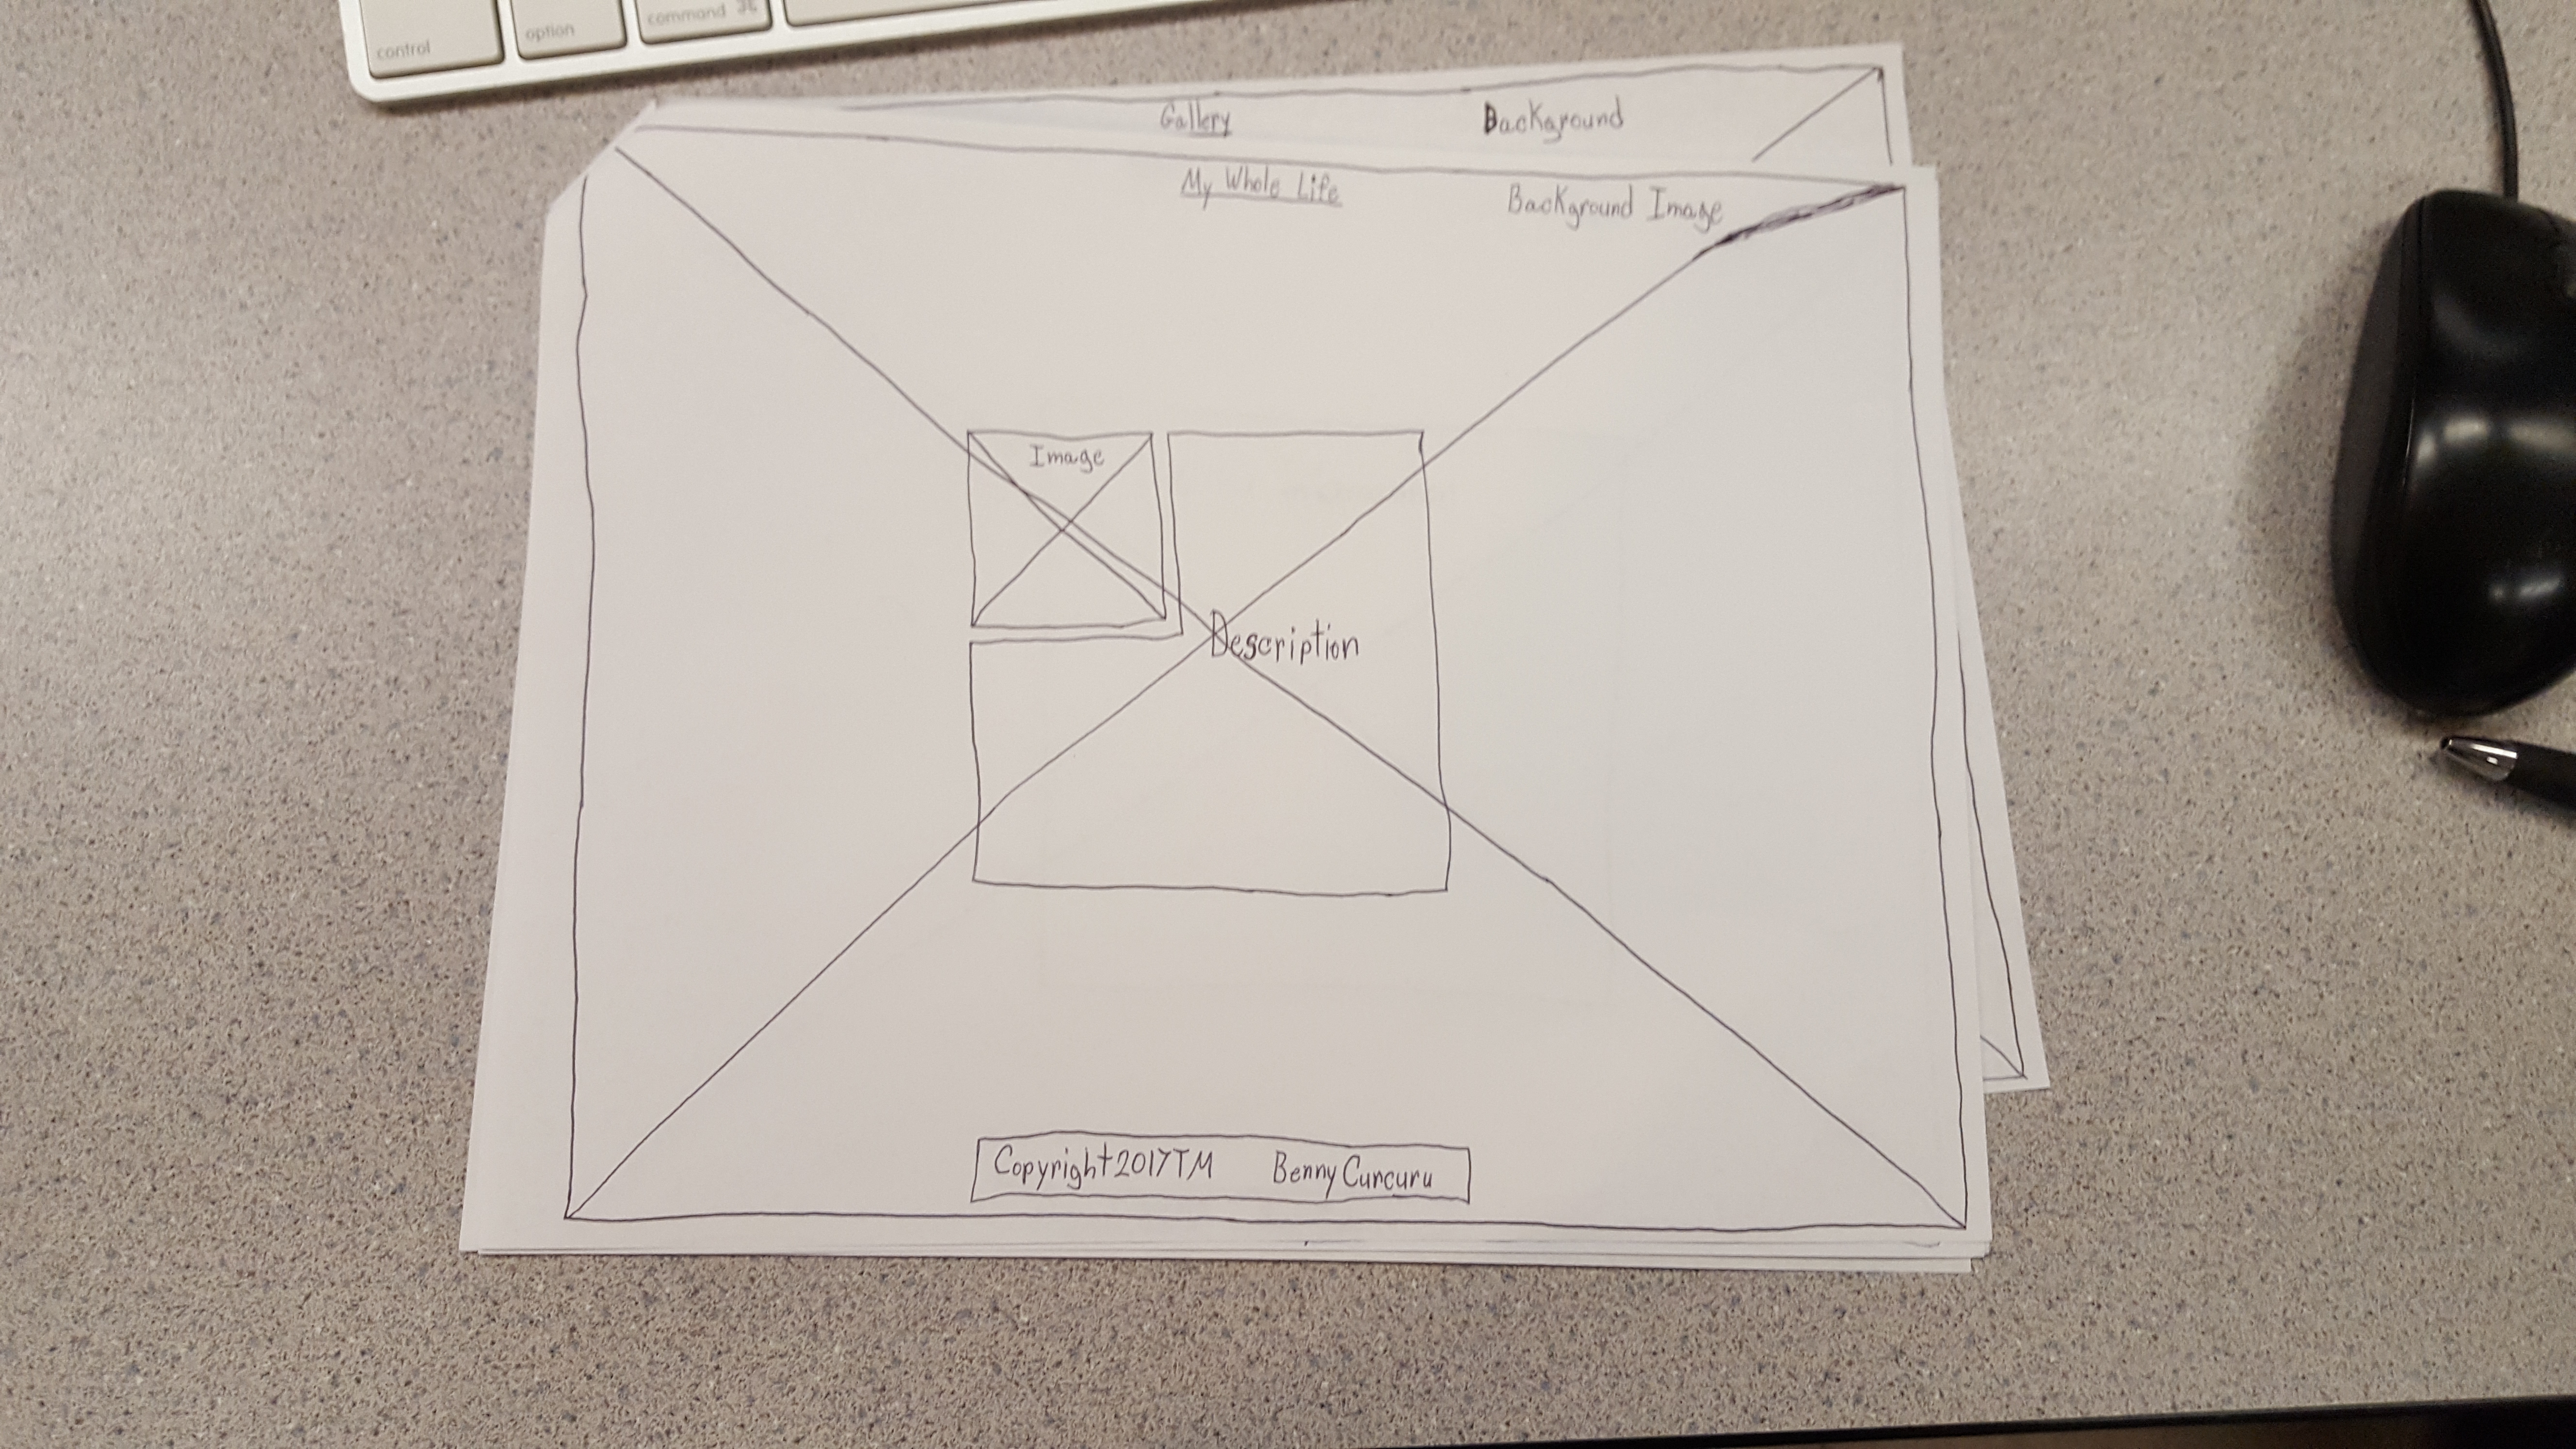 control option command ⌘
Gallery Background
My Whole Life Background Image
Image
Description
Copyright 2017TM Benny Curcuru